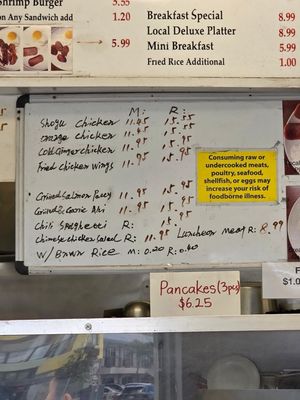 Shrimp Burger 5.55
on Any Sandwich add 1.20
5.99
Breakfast Special 8.99
Local Deluxe Platter 8.99
Mini Breakfast 5.99
Fried Rice Additional 1.00
M: R:
Shoyu Chicken 11.95 15.55
Orange Chicken 11.95 15.95
Cold Ginger Chicken 11.95 15.95
Fried Chicken Wings 11.95 15.95
Grilled Salmon 11.95 15.95
Grilled Garlic Ahi 11.95 15.95
Chili Spaghetti R: 11.95
Chinese Chicken Salad R: 11.95
Luncheon Meat R: 8.99
W/ Brown Rice M: 0.20 R: 0.40
Consuming raw or
undercooked meats,
poultry, seafood,
shellfish, or eggs may
increase your risk of
foodborne illness.
Pancakes (3pcs)
$6.25